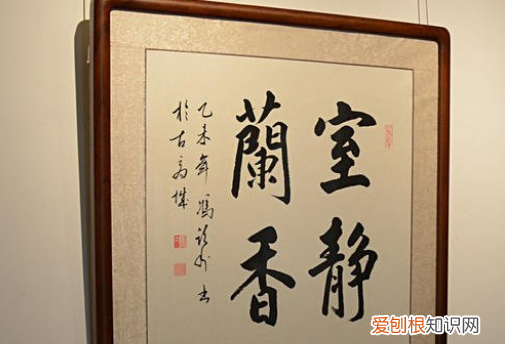 室静
蘭香
乙未年馮
於古城
爱刨根知识网